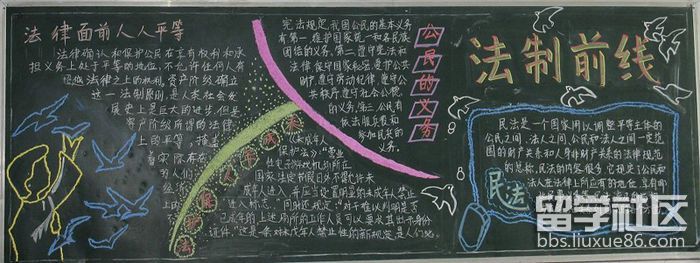 法律面前人人平等
法律确认和保护公民在享有权利和承
担义务上处于平等的地位,不允许任何人有
超越法律之上的权利。资产阶级确立
这一法制原则,是人类社会发
展史上是巨大的进步,但是
资产阶级所谓的法律
上的平等,掩盖
着实际存在
的人们
经济
宪法规定,我国公民的基本义务
有第一维护国家统一和各民族
团结的义务。第二遵守宪法和
法律,保守国家秘密,爱护公共
财产,遵守劳动纪律,遵守公
共秩序,遵守社会公德
的义务。第三,公民有
依法服兵役和
参加民兵的义
务。
公民的义务
《未成年人
保护法》:“营业
性电子游戏机场所在
国家法定节假日外不得允许
未成年人进入,并应当设置明显的未成年人禁止
进入标志。”同时还规定:“对于难以判明是否
已成年的,上述场所的工作人员可以要求其出示身份
证件。”这是一条对未成年人禁止性的新规定,是人们
法制前线
民法是一个国家用以调整平等主体的
公民之间、法人之间、公民和法人之间一定范
围的财产关系和人身非财产关系的法律规范
的总称。民法的内容很多,它规定公民和
法人在法律上所应有的地位、享有哪
民法
留学社区
bbs.liuxue86.com